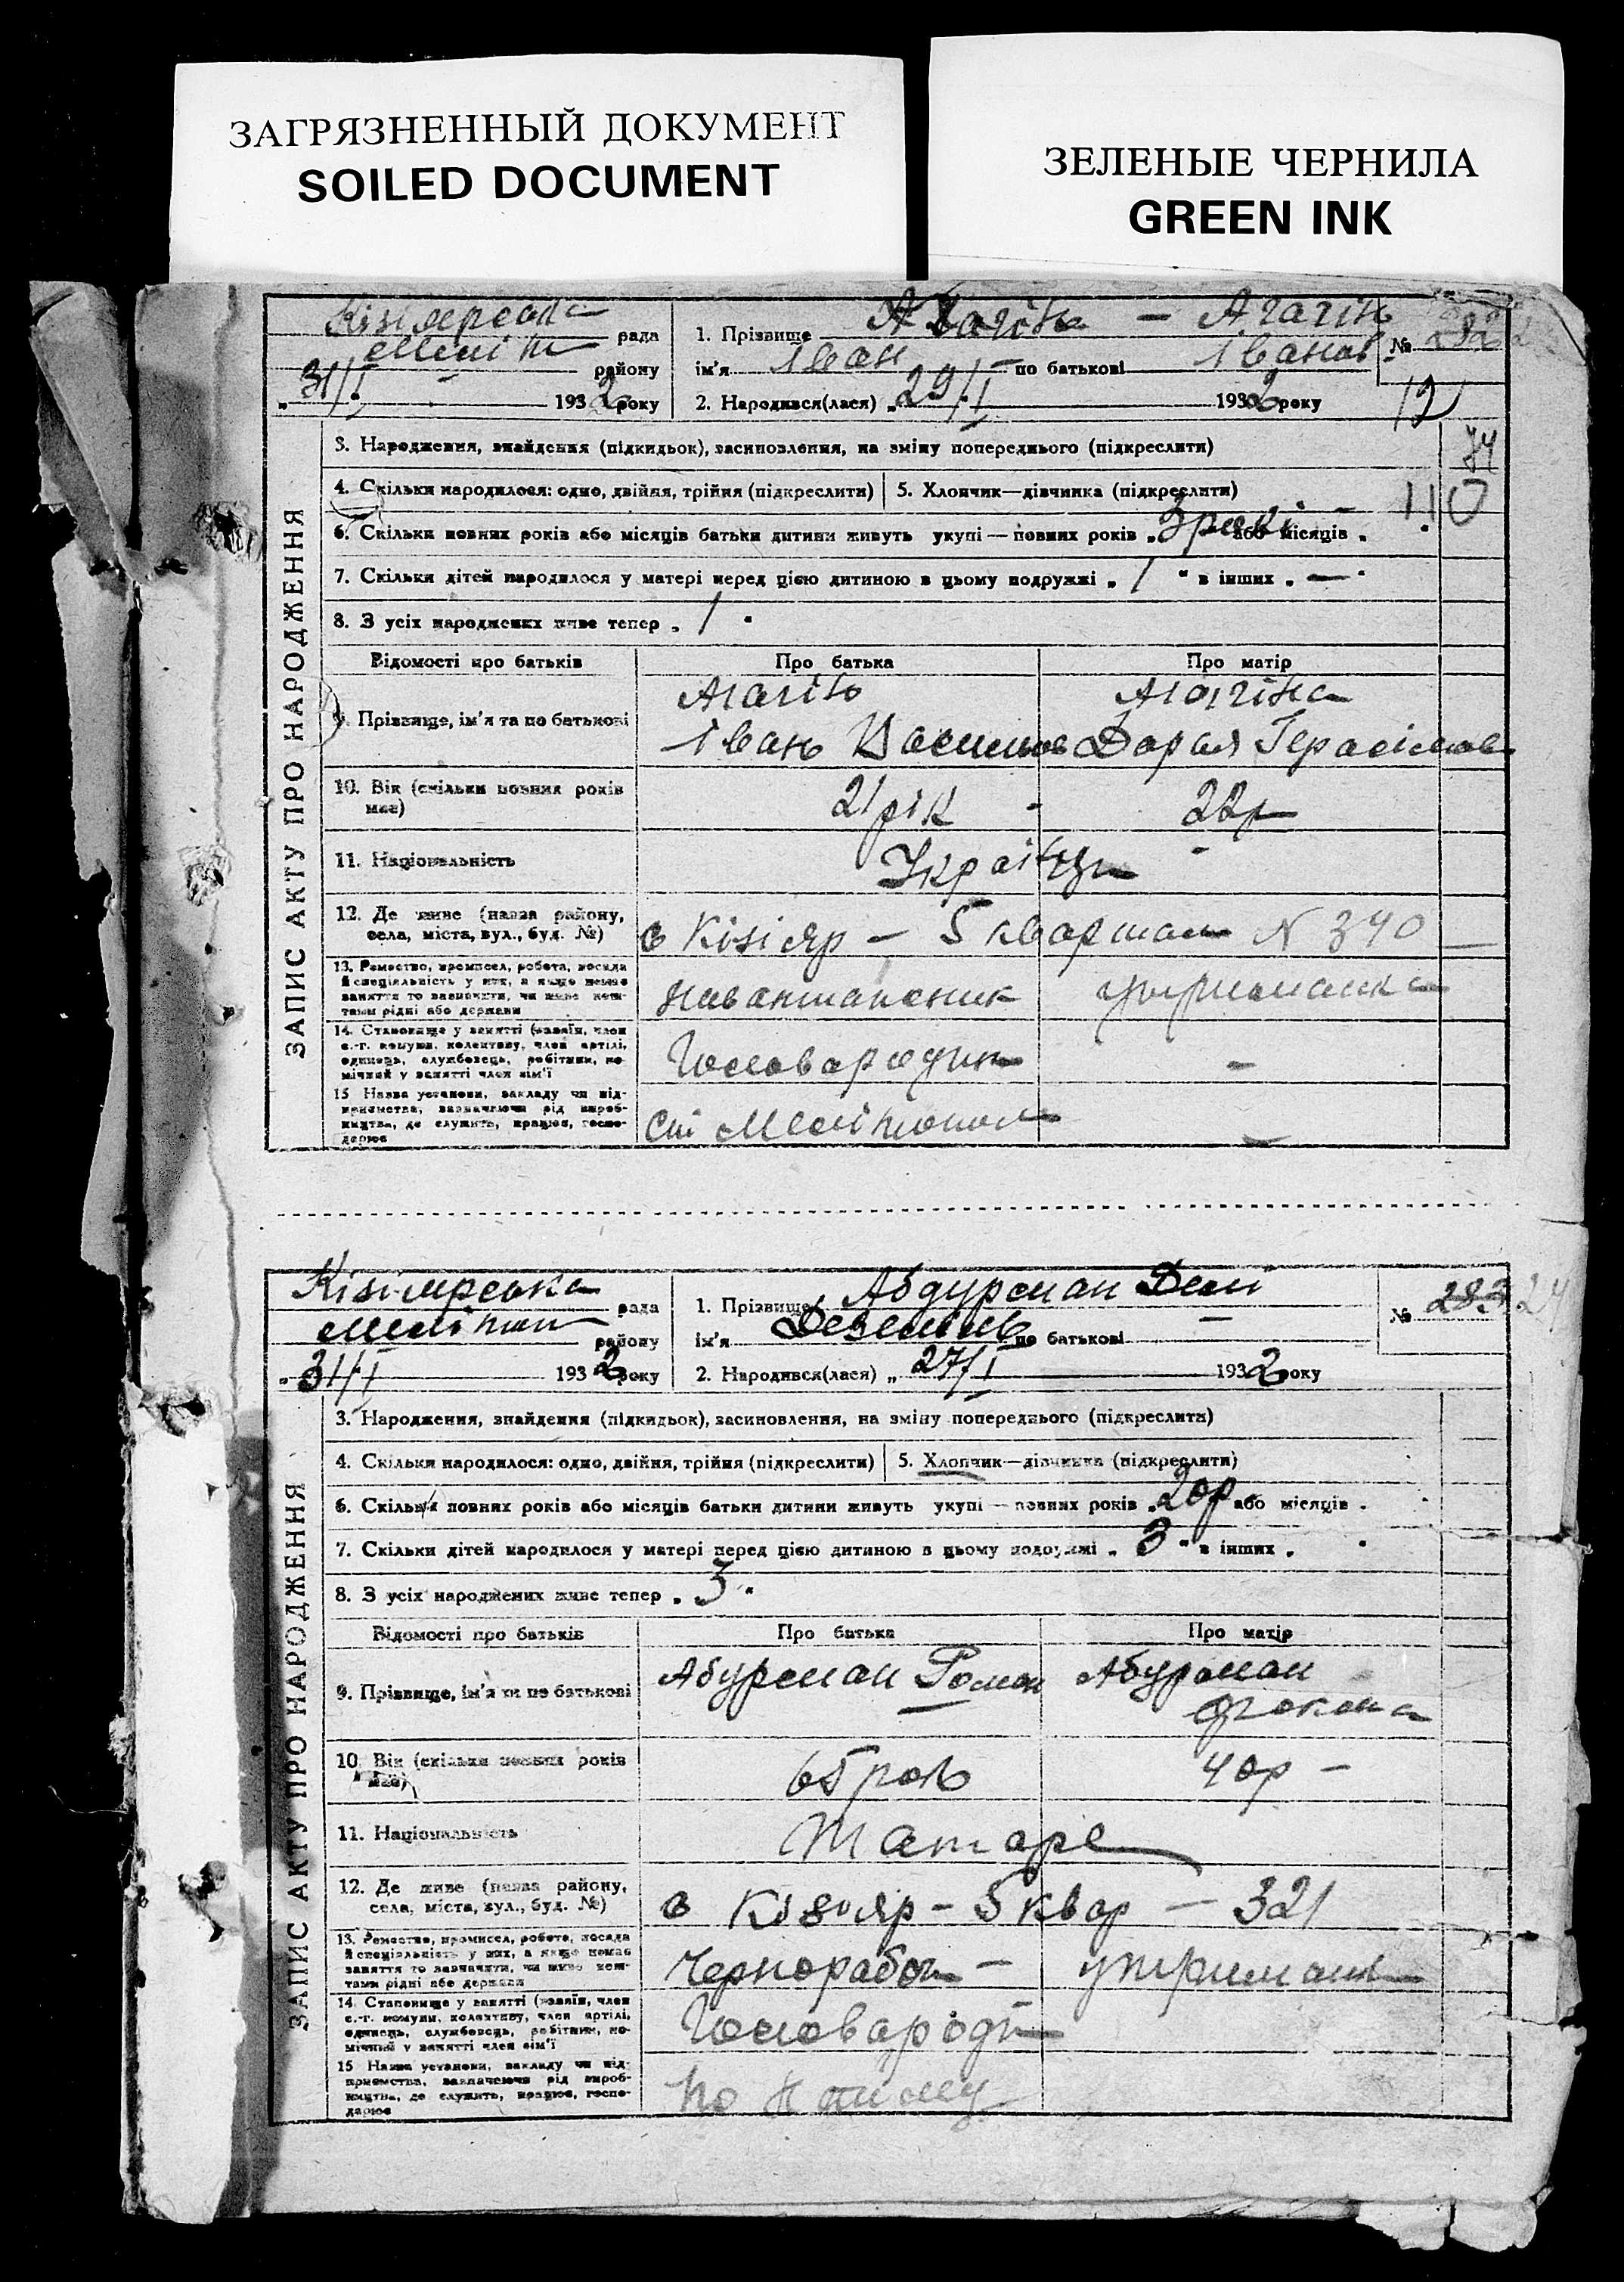 ЗАГРЯЗНЕННЫЙ ДОКУМЕНТ
SOILED DOCUMENT
ЗЕЛЕНЫЕ ЧЕРНИЛА
GREEN INK
ЗАПИС АКТУ ПРО НАРОДЖЕННЯ
рада
району
31/I 1932 року
1. Прізвище Агагін — Агагін
ім'я Іван по батькові Іванов
2. Народився(лася) „ 29/I 1932 року
№ 282
12
3. Народження, знайдення (підкидьок), засиновлення, на зміну попереднього (підкреслити)
4. Скільки народилося: одно, двійня, трійня (підкреслити) 5. Хлопчик—дівчинка (підкреслити)
6. Скільки повних років або місяців батьки дитини живуть укупі — повних років „ 3 роки або місяців „
7. Скільки дітей народилося у матері перед цією дитиною в цьому подружжі „ 1 " в інших „ — "
8. З усіх народжених живе тепер „ 1 "
Відомості про батьків Про батька Про матір
9. Прізвище, ім'я та по батькові
Агагін Агагіна
Іван Василів Дарья Герасімов
10. Вік (скільки повних років має) 21 рік - 22 р
11. Національність Українці
12. Де живе (назва району, села, міста, вул., буд. №) с Кізіяр — 5 квартал N 340
13. Ремество, промисел, робота, посада й спеціяльність у них, а якщо немає заняття то зазначити, чи живе коштами рідні або держави
утриманка
14. Становище у занятті (хазяїн, член с.-г. комуни, колективу, член артілі, одинець, службовець, робітник, помічний у занятті член сім'ї
—
15 Назва установи, закладу чи підприємства, зазначаючи рід виробництва, де служить, працює, господарює
ст Мелітополь
ЗАПИС АКТУ ПРО НАРОДЖЕННЯ
Кізіярська рада
району
„ 31/I 1932 року
1. Прізвище Абдурсман
ім'я по батькові —
2. Народився(лася) „ 27/I 1932 року
№ 283 24
3. Народження, знайдення (підкидьок), засиновлення, на зміну попереднього (підкреслити)
4. Скільки народилося: одно, двійня, трійня (підкреслити) 5. Хлопчик—дівчинка (підкреслити)
6. Скільки повних років або місяців батьки дитини живуть укупі — повних років „ 20 р або місяців „
7. Скільки дітей народилося у матері перед цією дитиною в цьому подружжі „ 3 " в інших „ "
8. З усіх народжених живе тепер „ 3 "
Відомості про батьків Про батька Про матір
9. Прізвище, ім'я та по батькові Абурсман Роман Абурсман
10. Вік (скільки повних років має) 65 рок 40 р —
11. Національність Татаре
12. Де живе (назва району, села, міста, вул., буд. №) с Кізіяр — 5 квар — 321
13. Ремество, промисел, робота, посада й спеціяльність у них, а якщо немає заняття то зазначити, чи живе коштами рідні або держави
Чернорабоч — утриман
14. Становище у занятті (хазяїн, член с.-г. комуни, колективу, член артілі, одинець, службовець, робітник, помічний у занятті член сім'ї
15 Назва установи, закладу чи підприємства, зазначаючи рід виробництва, де служить, працює, господарює
по найму